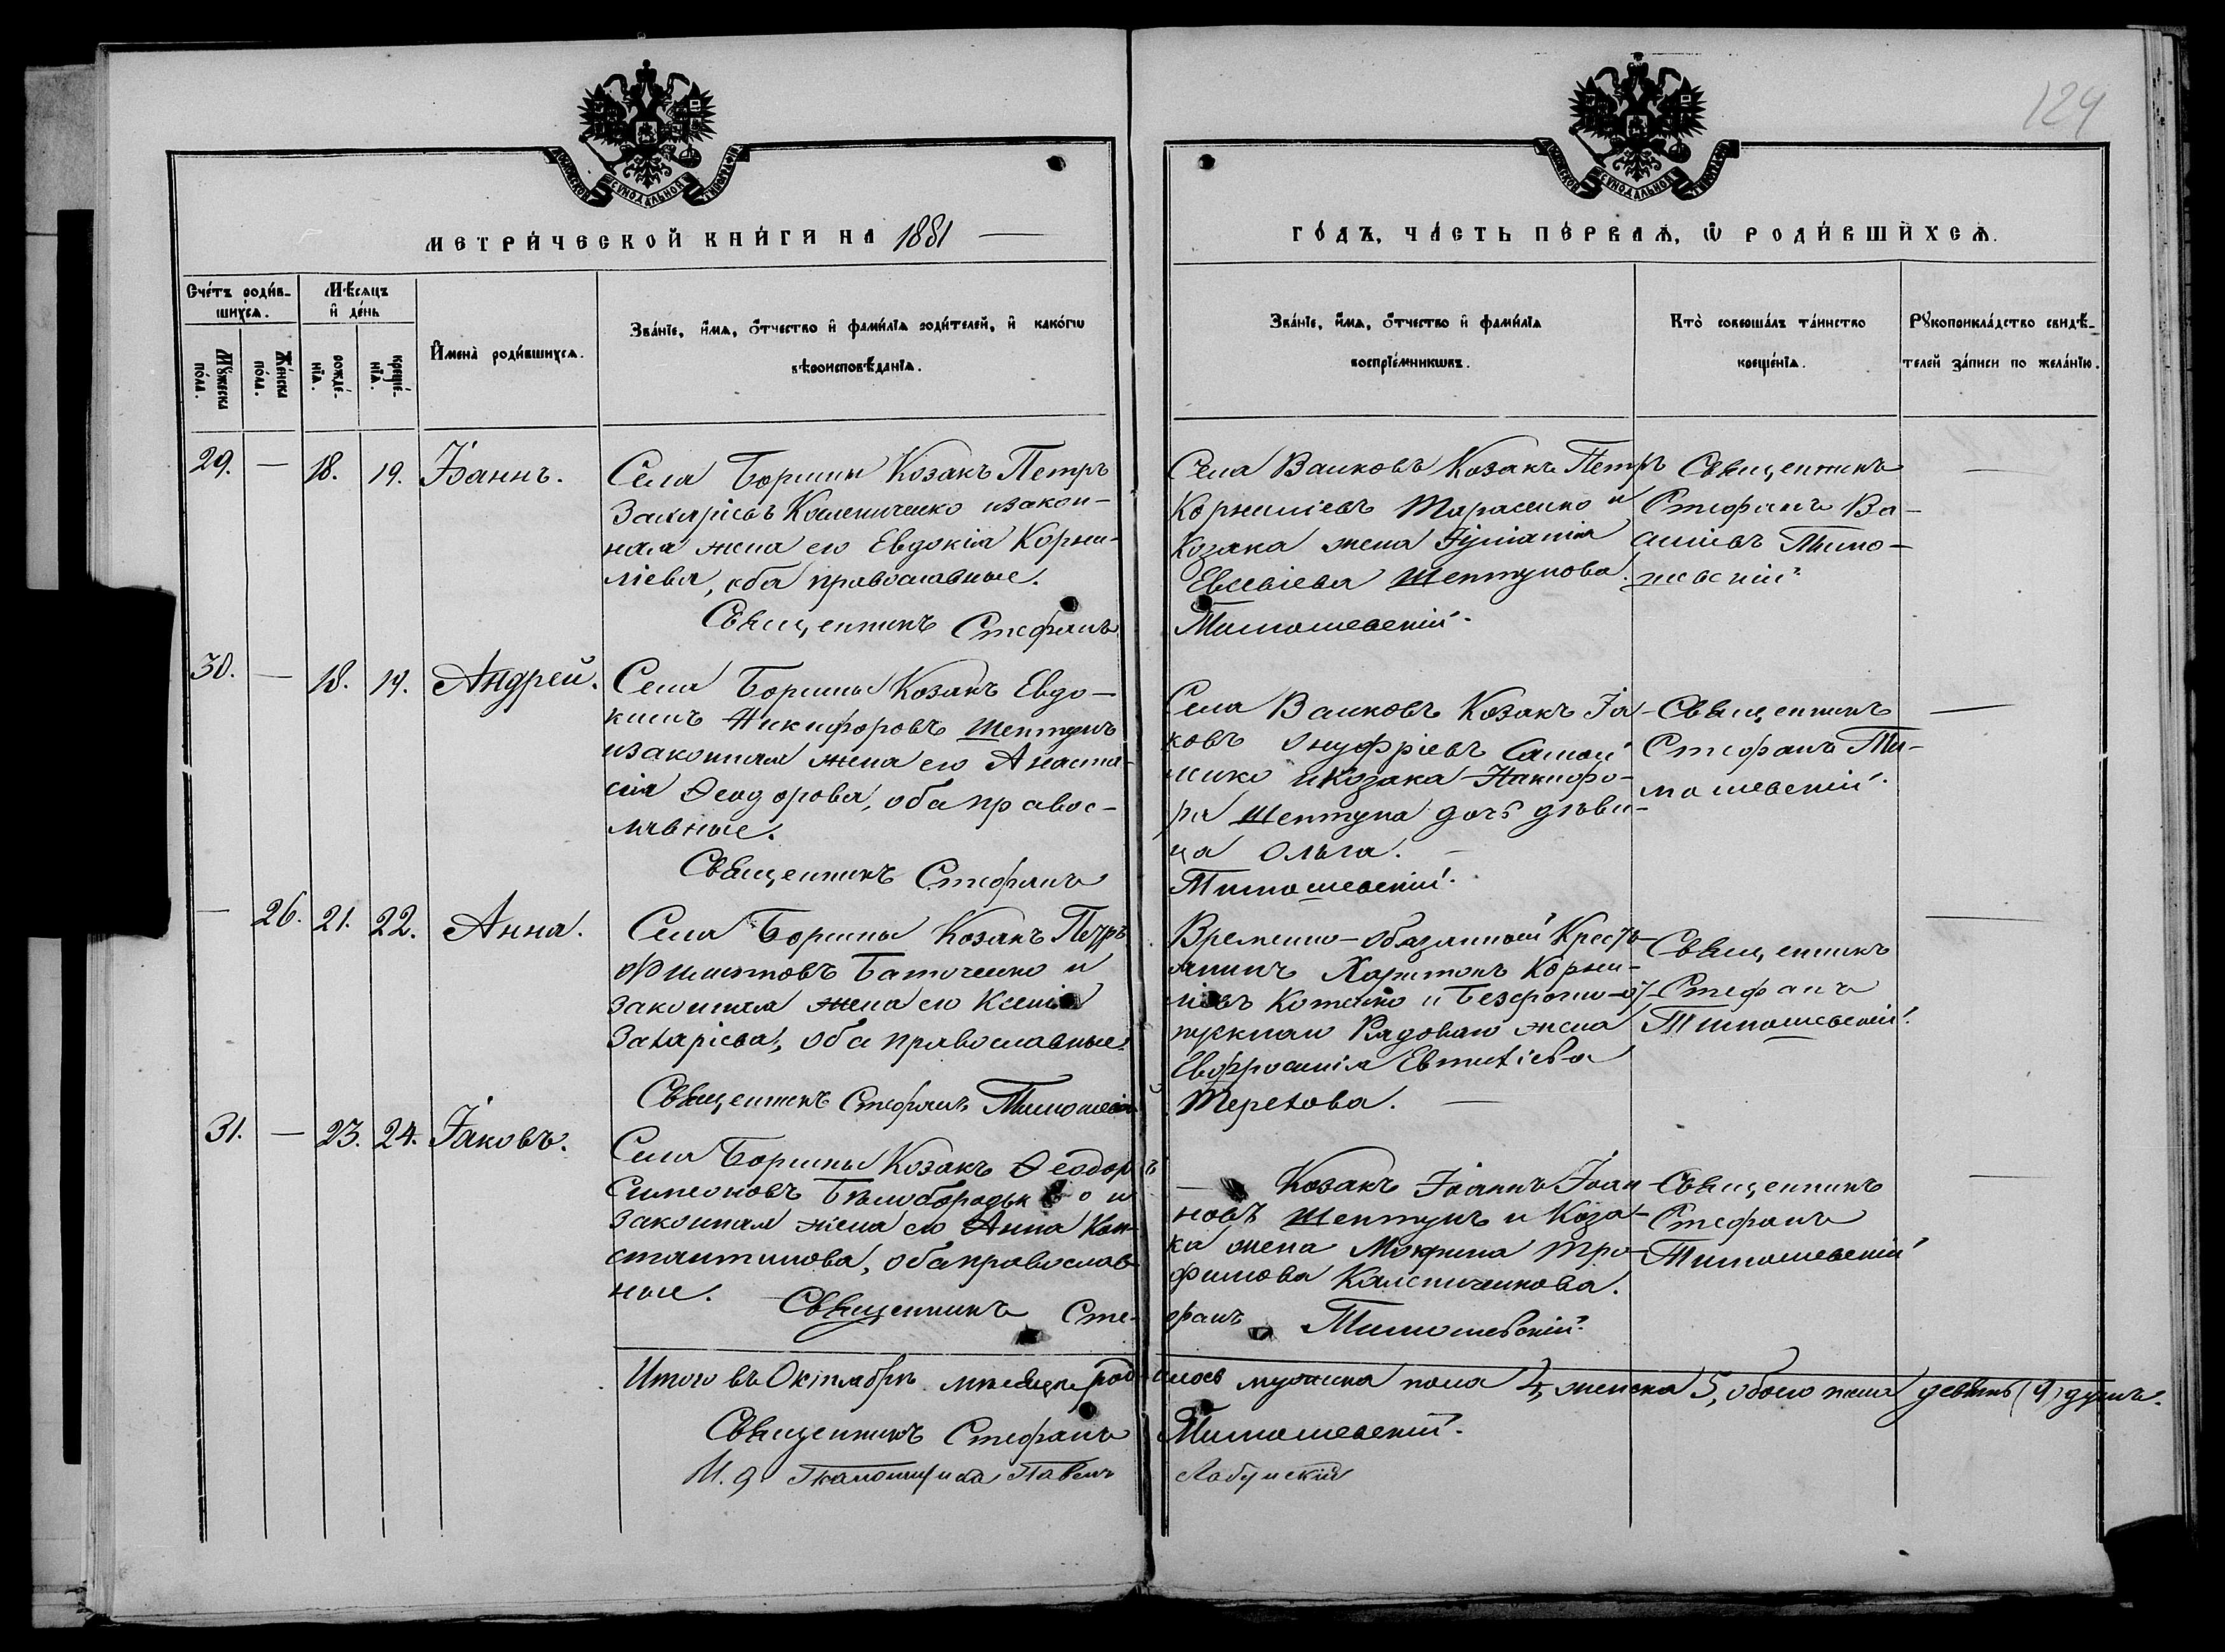 124
МОСКОВСКОЙ СѴНОДАЛЬНОЙ ТИПОГРАФІИ
МОСКОВСКОЙ СѴНОДАЛЬНОЙ ТИПОГРАФІИ
МЕТРИ́ЧЕСКОЙ КНИ́ГИ НА 1881 —
ГО́ДЪ, ЧА́СТЬ ПЕ́РВАѦ, Ѡ РОДИ́ВШИХСѦ.
Сче́тъ роди́в-
шихсѧ.
Мꙋ́жеска
по́ла.
Же́нска
по́ла.
Мѣ́сѧцъ
и҆ де́нь
рожде́-
нїѧ.
креще́-
нїѧ.
И҆мена̀ роди́вшихсѧ.
Зва́нїе, и҆́мѧ, ѻ҆́тчество и҆ фами́лїѧ роди́телей, и҆ како́гѡ
вѣроисповѣ́данїѧ.
Зва́нїе, и҆́мѧ, ѻ҆́тчество и҆ фами́лїѧ
воспрїе́мникѡвъ.
Кто̀ соверша́лъ та́инство
креще́нїѧ.
Рꙋкоприкла́дство свидѣ́-
телей за́писи по жела́нїю.
29. — 18. 19. Іоаннъ.
Села Борщны Козакъ Петръ
Захаріевъ Колениченко изакон-
ная жена его Евдокія Корни-
ліева, оба православные.
Священникъ Стефанъ
Села Валковъ Козакъ Петръ
Корниліевъ Тарасенко и
Козака жена Іуліанія
Евсевіева Шептунова.
Тимошевскій.
Священникъ
Стефанъ Ва-
силіевъ Тимо-
шевскій
—
30. — 18. 19. Андрей.
Села Борщны Козакъ Евдо-
кимъ Никифоровъ Шептунъ
изаконная жена его Анаста-
сія Ѳеодорова, оба правос-
лавные.
Священникъ Стефанъ
Села Валковъ Козакъ Іа-
ковъ Онуфріевъ Самой
ленко иКозака Никифо-
ра Шептуна дочь дѣви-
ца Ольга. —
Тимошевскій.
Священникъ
Стефанъ Ти-
мошевскій.
—
— 26. 21. 22. Анна.
Села Борщны Козакъ Петръ
Филиповъ Баточенко и
законная жена его Ксенія
Захаріева, оба православные.
Священникъ Стефанъ Тимошевскій
Временно-обязанный Кресть-
янинъ Харитонъ Корни-
ліевъ Котенко и Безсрочно-от-
пускнаго Рядоваго жена
Евфросинія Евтихіева
Терехова. —
Священникъ
Стефанъ
Тимошевскій.
—
31. — 23. 24. Іаковъ.
Села Борщны Козакъ Ѳеодоръ
Симеоновъ Бѣлобородько и
законная жена его Анна Кон-
стантинова, оба православ-
ные.
Священникъ Сте-
— Козакъ Іоаннъ Іоан-
новъ Шептунъ и Коза-
ка жена Мокрина Тро-
фимова Калениченкова.
фанъ Тимошевскій.
Священникъ
Стефанъ
Тимошевскій
—
Итого въ Октябрѣ мѣсяцѣ родилось мужеска пола 4, женска 5, обоего пола девять (9) душъ.
Священникъ Стефанъ Тимошевскій.
И. д. Псаломщика Павелъ